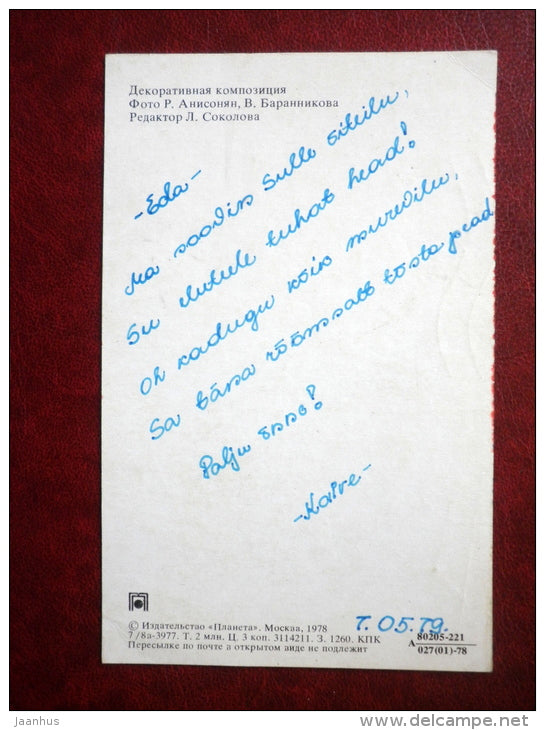 Декоративная композиция
Фото Р. Анисонян, В. Баранникова
Редактор Л. Соколова
-Eda-
Ma soovin Sulle siivilu,
Su elutule tuhat head!
Oh kadugu kõik murevilu,
Sa täna rõõmsalt tõsta pead
Palju õnne!
-Kaire-
T. 05.79.
© Издательство «Планета». Москва, 1978
7/8а-3977. Т. 2 млн. Ц. 3 коп. 3114211. З. 1260. КПК
Пересылке по почте в открытом виде не подлежит
А 80205-221
027(01)-78
jaanhus
www.delcampe.net